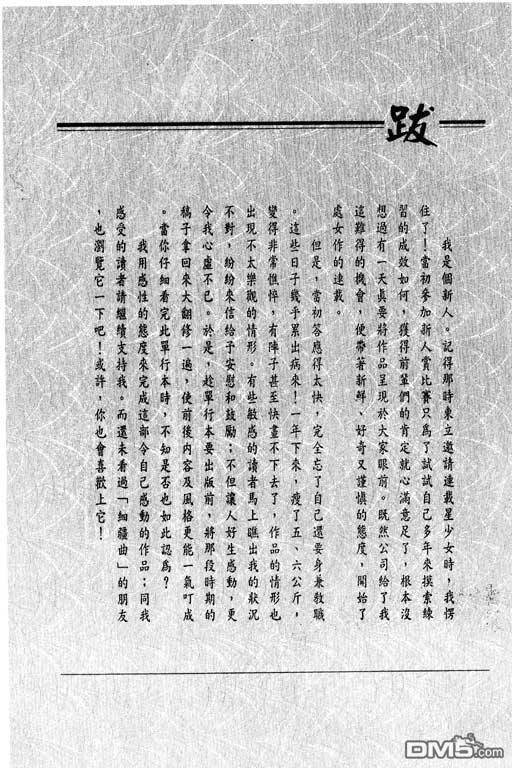 跋
我是個新人。記得那時東立邀請連載星少女時，我愣
住了！當初參加新人賞比賽只為了試試自己多年來摸索練
習的成效如何，獲得前輩們的肯定就心滿意足了，根本沒
想過有一天真要將作品呈現於大家眼前。既然公司給了我
這難得的機會，便帶著新鮮、好奇又謹慎的態度，開始了
處女作的連載。
但是，當初答應得太快，完全忘了自己還要身兼教職
。這些日子幾乎累出病來！一年下來，瘦了五、六公斤，
變得非常憔悴，有陣子甚至快畫不下去了，作品的情形也
出現不太樂觀的情形。有些敏感的讀者馬上瞧出我的狀況
不對，紛紛來信給予安慰和鼓勵；不但讓人好生感動，更
令我心虛不已。於是，趁單行本要出版前，將那段時期的
稿子拿回來大翻修一遍，使前後內容及風格更能一氣呵成
。當你仔細看完此單行本時，不知是否也如此認為？
我用感性的態度來完成這部令自己感動的作品；同我
感受的讀者請繼續支持我。而還未看過「細疆曲」的朋友
，也瀏覽它一下吧！或許，你也會喜歡上它！
DM5.com